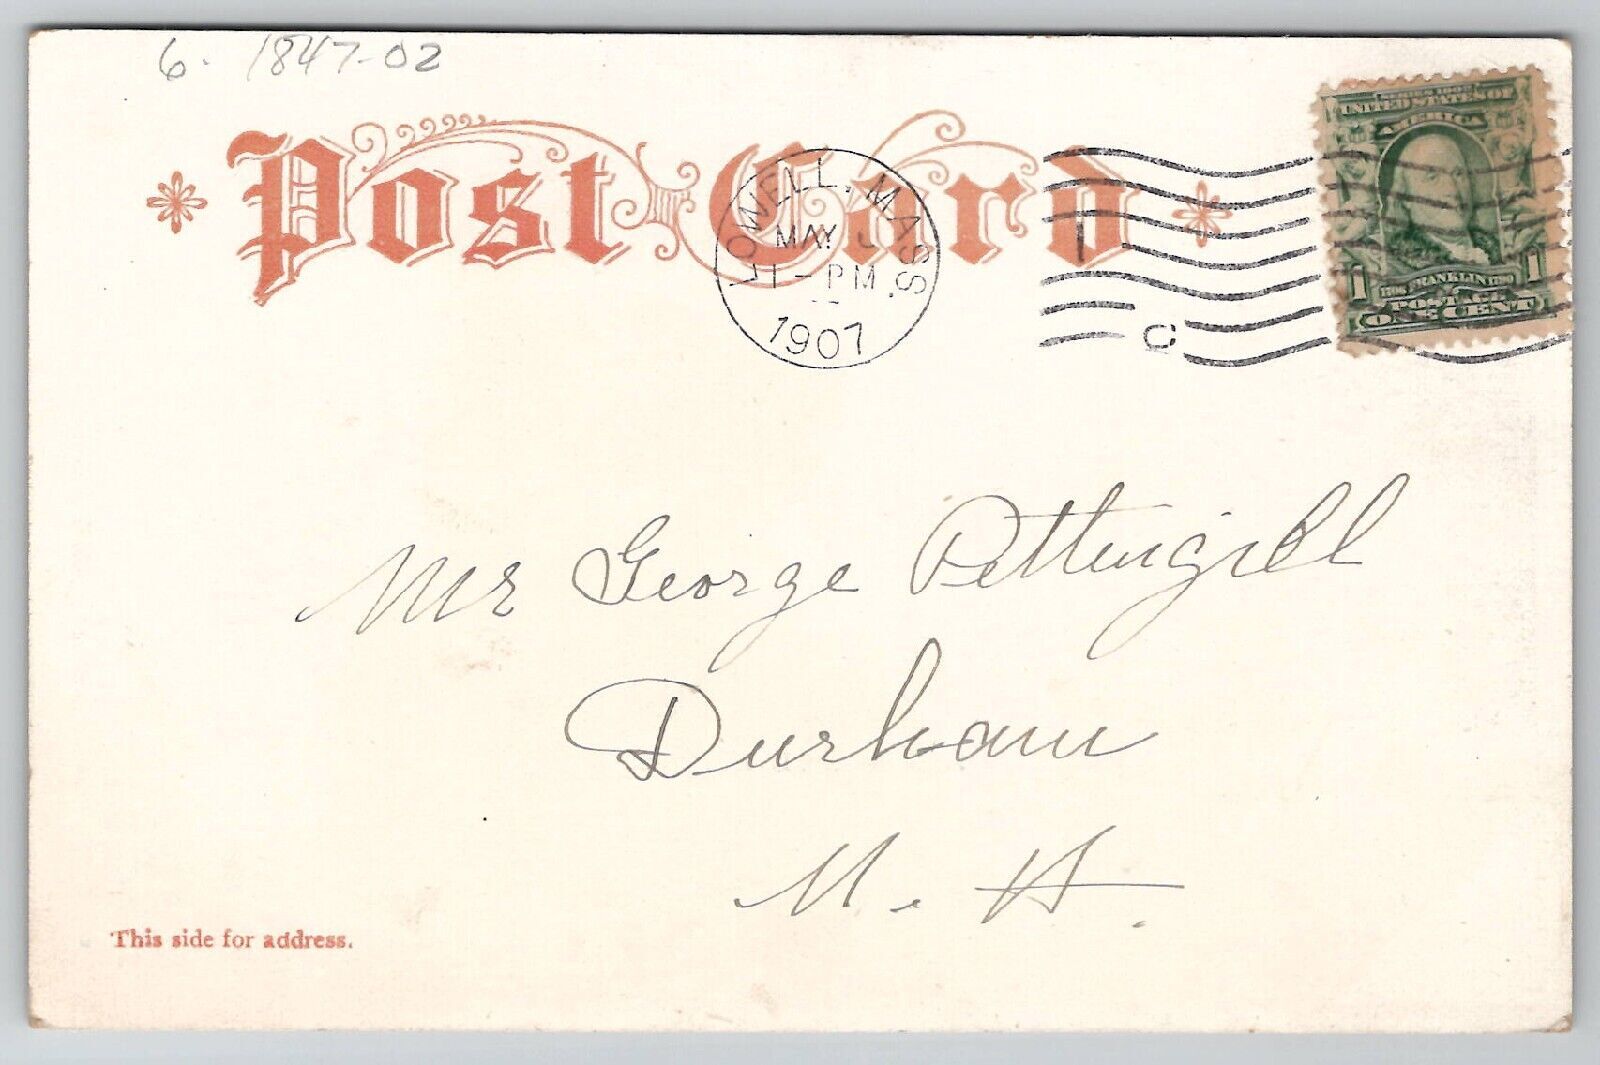 6. 1847-02
Post Card
LOWELL, MASS.
MAY
1 - PM
1907
C
SERIES 1902
UNITED STATES OF
AMERICA
1 FRANKLIN 1
POSTAGE
ONE CENT
Mr George Pettingill
Durham
N. H.
This side for address.